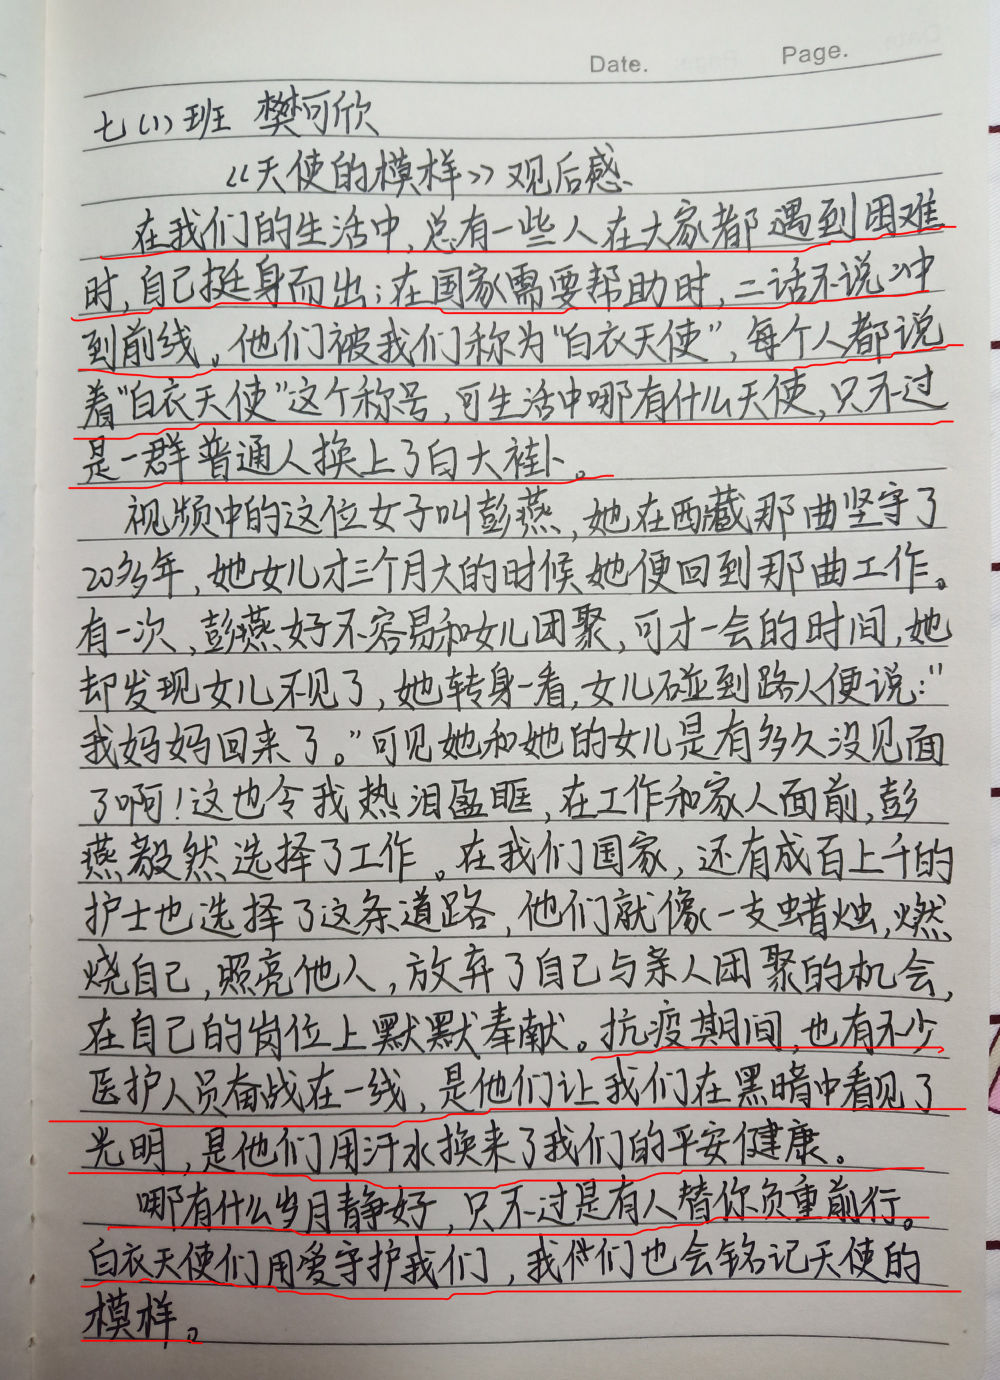 Date. Page.
七(1)班 樊可欣
《天使的模样》观后感
在我们的生活中,总有一些人在大家都遇到困难
时,自己挺身而出;在国家需要帮助时,二话不说冲
到前线。他们被我们称为“白衣天使”,每个人都说
着“白衣天使”这个称号,可生活中哪有什么天使,只不过
是一群普通人换上了白大褂。
视频中的这位女子叫彭燕,她在西藏那曲坚守了
20多年,她女儿才三个月大的时候她便回到那曲工作。
有一次,彭燕好不容易和女儿团聚,可才一会的时间,她
却发现女儿不见了,她转身一看,女儿碰到路人便说:“
我妈妈回来了。”可见她和她的女儿是有多久没见面
了啊!这也令我热泪盈眶,在工作和家人面前,彭
燕毅然选择了工作。在我们国家,还有成百上千的
护士也选择了这条道路,他们就像一支蜡烛,燃
烧自己,照亮他人,放弃了自己与亲人团聚的机会,
在自己的岗位上默默奉献。抗疫期间,也有不少
医护人员奋战在一线,是他们让我们在黑暗中看见了
光明,是他们用汗水换来了我们的平安健康。
哪有什么岁月静好,只不过是有人替你负重前行。
白衣天使们用爱守护我们,我们也会铭记天使的
模样。